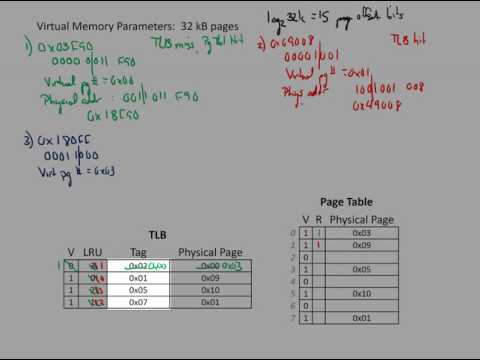 Virtual Memory Parameters: 32 kB pages
log₂32k = 15 page offset bits
1) 0x03F90 TLB miss, Pg Tbl Hit
0000 0|011 F90
Virtual pg # = 0x00
Physical addr: 001|1 011 F90
0x18F90
2) 0x09008 TLB hit
0000 1|001
Virtual pg # = 0x01
Phys addr: 1001|001 008
0x49008
3) 0x180FF
0001 1|000
Virt pg # = 0x03
TLB
V LRU Tag Physical Page
1 0 1 0x02 0x00 0x00 0x03
1 0x01 0x09
1 0x05 0x10
1 2 0x07 0x01
Page Table
V R Physical Page
0 1 1 0x03
1 1 1 0x09
2 0
3 1 0x05
4 0
5 1 0x10
6 0
7 1 0x01